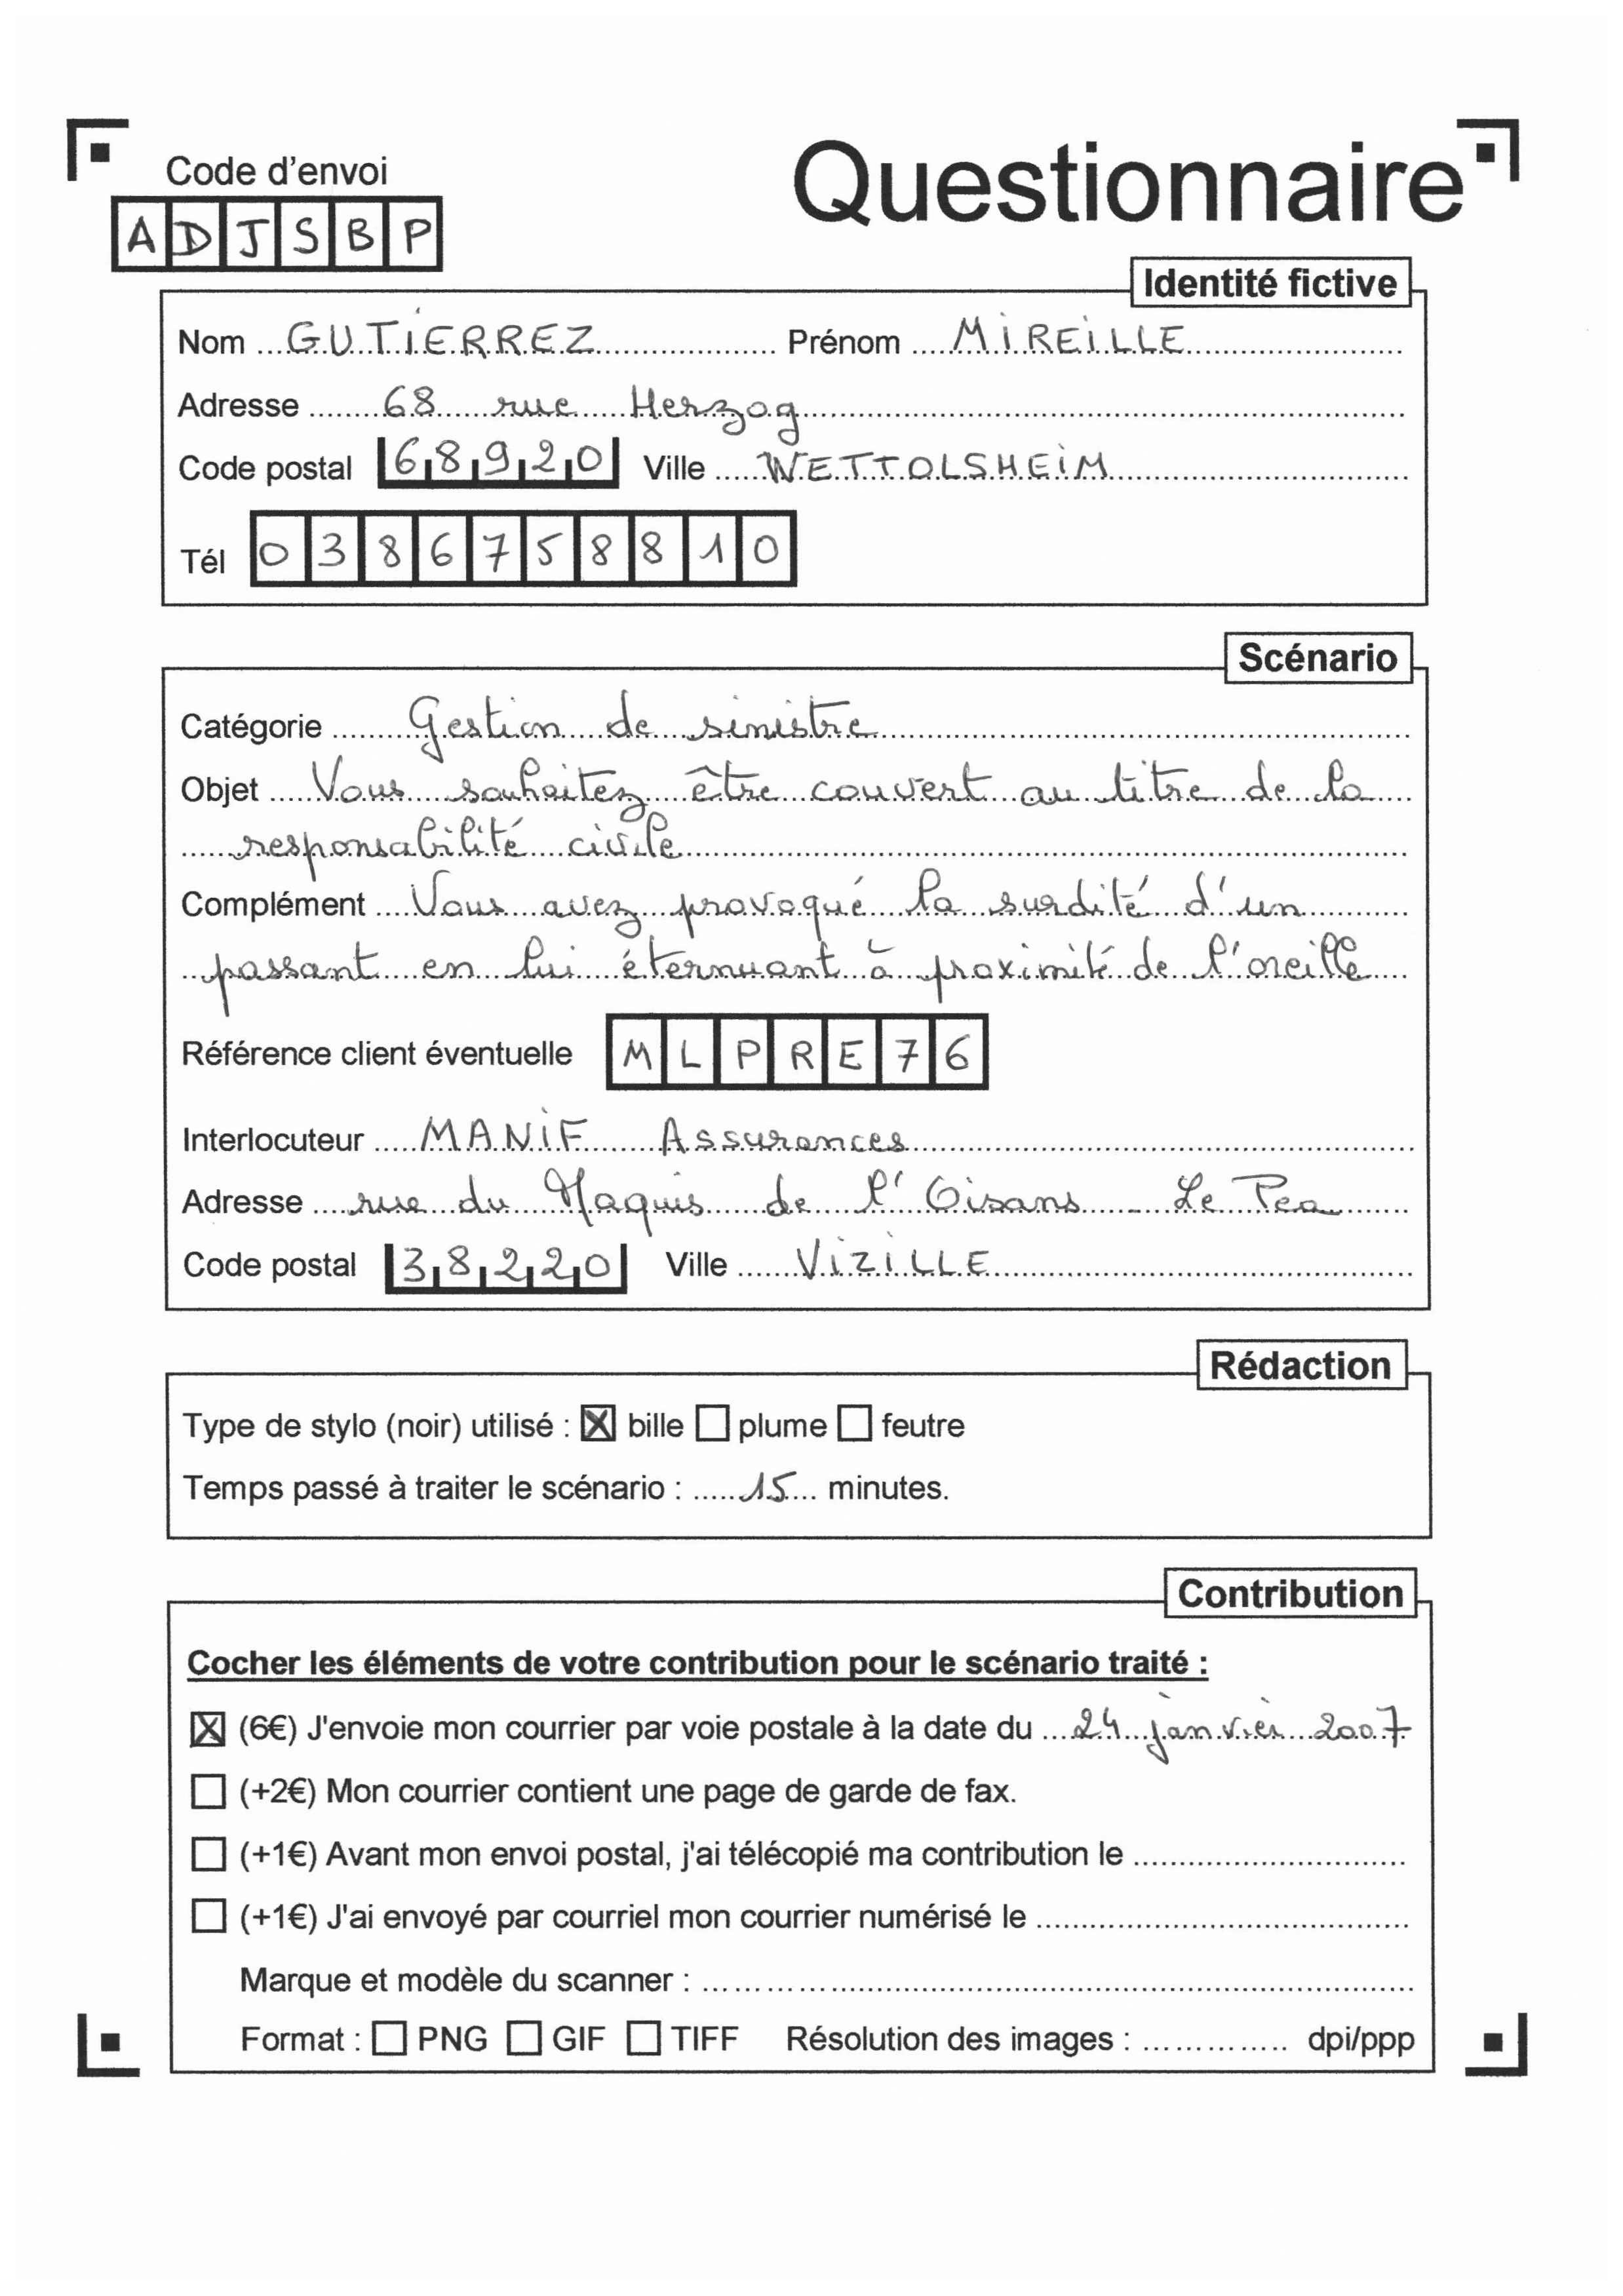 Code d'envoi
Questionnaire
ADJSBP
Identité fictive
Nom GUTIERREZ Prénom MIREILLE
Adresse 68 rue Herzog
Code postal 68920 Ville WETTOLSHEIM
Tél 0386758810
Scénario
Catégorie Gestion de sinistre
Objet Vous souhaitez être couvert au titre de la
responsabilité civile
Complément Vous avez provoqué la surdité d'un
passant en lui éternuant à proximité de l'oreille
Référence client éventuelle MLPRE76
Interlocuteur MANIF Assurances
Adresse rue du Maquis de l'Oisans - Le Pea
Code postal 38220 Ville VIZILLE
Rédaction
Type de stylo (noir) utilisé : ☒ bille ☐ plume ☐ feutre
Temps passé à traiter le scénario : 15 minutes.
Contribution
Cocher les éléments de votre contribution pour le scénario traité :
☒ (6€) J'envoie mon courrier par voie postale à la date du 24 janvier 2007
☐ (+2€) Mon courrier contient une page de garde de fax.
☐ (+1€) Avant mon envoi postal, j'ai télécopié ma contribution le
☐ (+1€) J'ai envoyé par courriel mon courrier numérisé le
Marque et modèle du scanner :
Format : ☐ PNG ☐ GIF ☐ TIFF Résolution des images : dpi/ppp